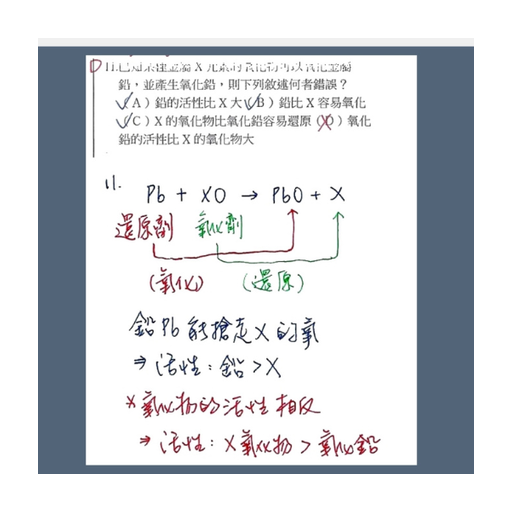 11.已知某種金屬 X 元素的氧化物可以氧化金屬
鉛，並產生氧化鉛，則下列敘述何者錯誤？
(A）鉛的活性比 X 大(B）鉛比 X 容易氧化
(C）X 的氧化物比氧化鉛容易還原(D）氧化
鉛的活性比 X 的氧化物大
11.
Pb + XO → PbO + X
還原劑 氧化劑
(氧化) (還原)
鉛Pb 能搶走 X 的氧
⇒ 活性：鉛 > X
* 氧化物的活性相反
⇒ 活性：X氧化物 > 氧化鉛